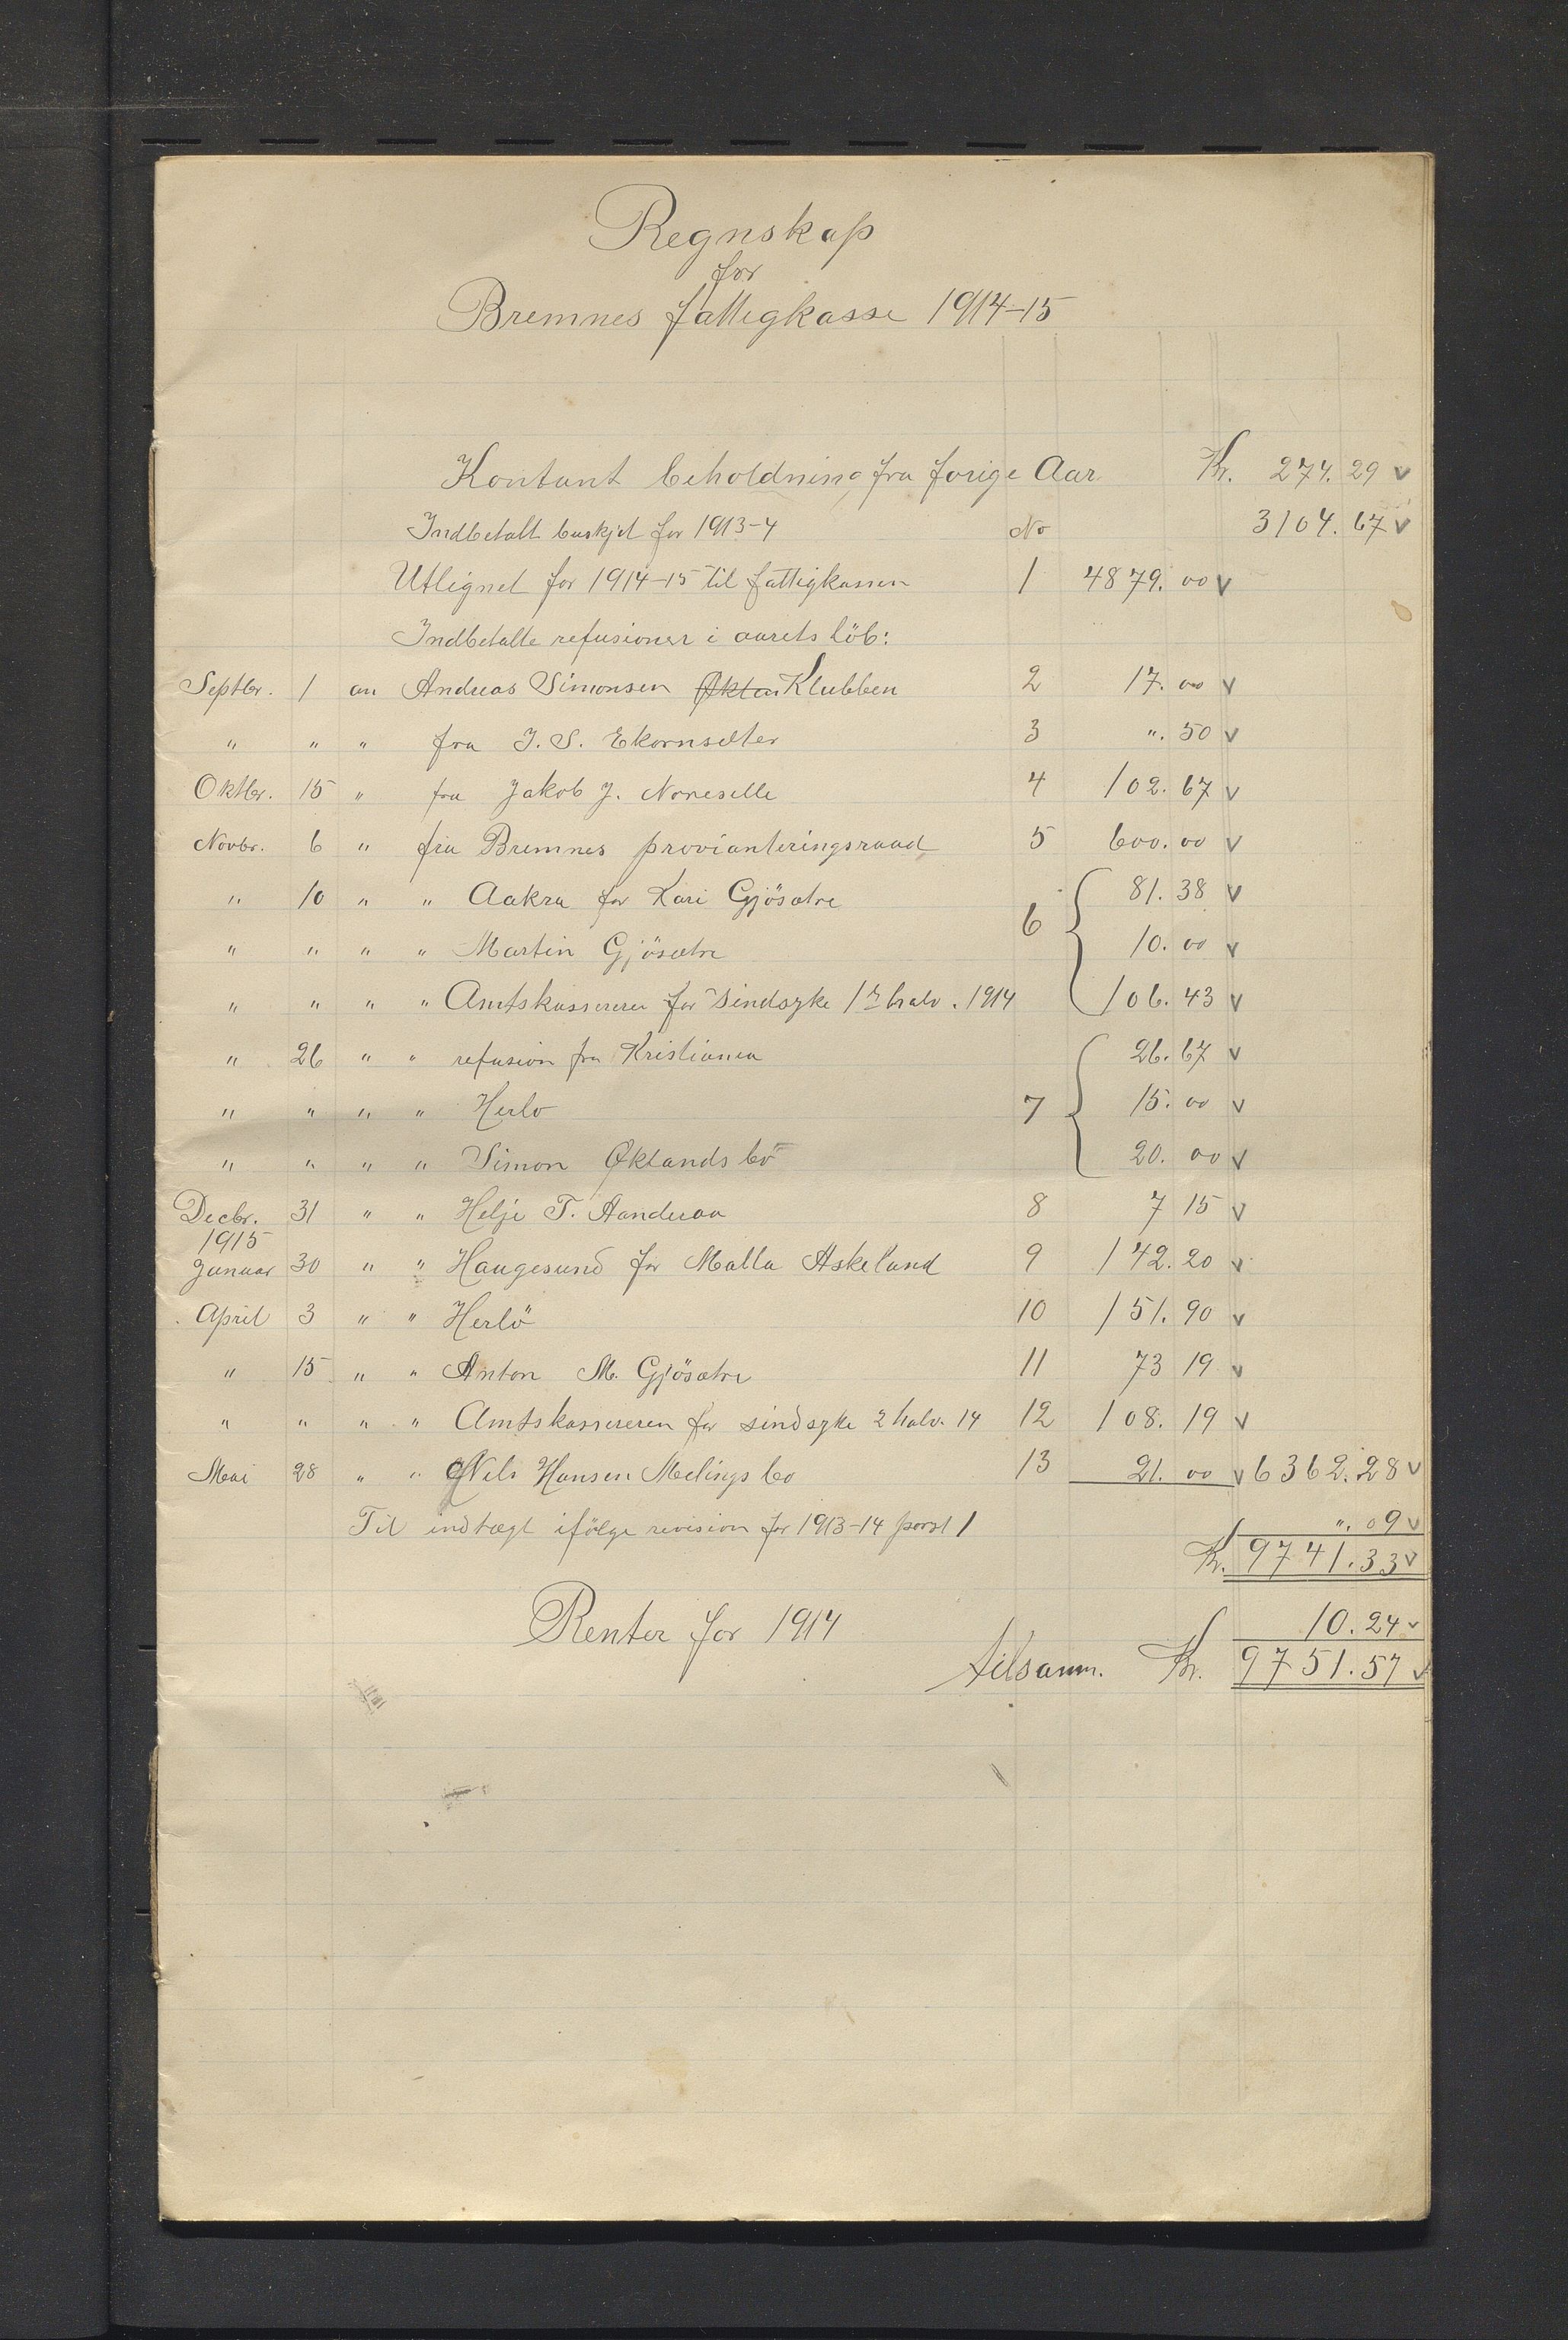 Regnskap
for
Bremnes fattigkasse 1914-15
Kontant beholdning fra forige Aar Kr. 274.29 v
Indbetalt buskjet for 1913-4 No 3104.67 v
Utlignet for 1914-15 til fattigkassen 1 4879.00 v
Indbetalte refusioner i aarets löb:
Septbr. 1 an Andreas Simonsen Øklan Klubben 2 17.00 v
" " " fra J. S. Ekornsæter 3 ".50 v
Oktbr. 15 " fra Jakob J. Noreselle 4 102.67 v
Novbr. 6 " fra Bremnes provianteringsraad 5 600.00 v
" 10 " " Aakra for Kari Gjösætre 81.38 v
" " " " Martin Gjösætre 6 10.00 v
" " " " Amtskassereren for sindsyke 1ste halv. 1914 106.43 v
" 26 " " refusion fra Kristiania 26.67 v
" " " " Herlo 7 15.00 v
" " " " Simon Øklands bö 20.00 v
Decbr. 31 " " Helje T. Aanderaa 8 7 15 v
1915
Januar 30 " " Haugesund for Malla Askeland 9 142.20 v
April 3 " " Herlö 10 151.90 v
" 15 " " Anton M. Gjösætre 11 73 19 v
" " " " Amtskassereren for sindsyke 2 halv. 14 12 108.19 v
Mai 28 " " Nils Hansen Melings bo 13 21.00 v 6362.28 v
Til indtægt ifölge revision for 1913-14 post 1 ".09 v
Kr. 9741.33 v
Renter for 1914 10.24 v
tilsamm. Kr. 9751.57 v